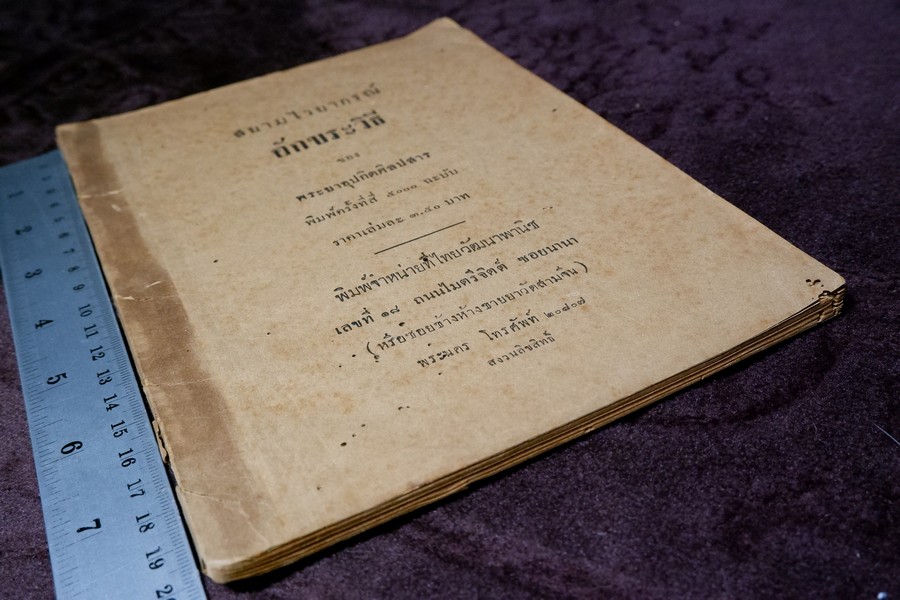 สยามไวยากรณ์
อักขระวิธี
ของ
พระยาอุปกิตศิลปสาร
พิมพ์ครั้งที่สี่ ๕๐๐๐ ฉะบับ
ราคาเล่มละ ๓.๕๐ บาท
พิมพ์จำหน่ายที่ไทยวัฒนาพานิช
เลขที่ ๑๘ ถนนไมตรีจิตต์ ซอยนานา
(หรือซอยข้างห้างขายยาวัดสามจีน)
พระนคร โทรศัพท์ ๒๐๔๐๗
สงวนลิขสิทธิ์
1 2 3 4 5 6 7
7 8 9 10 11 12 13 14 15 16 17 18 19